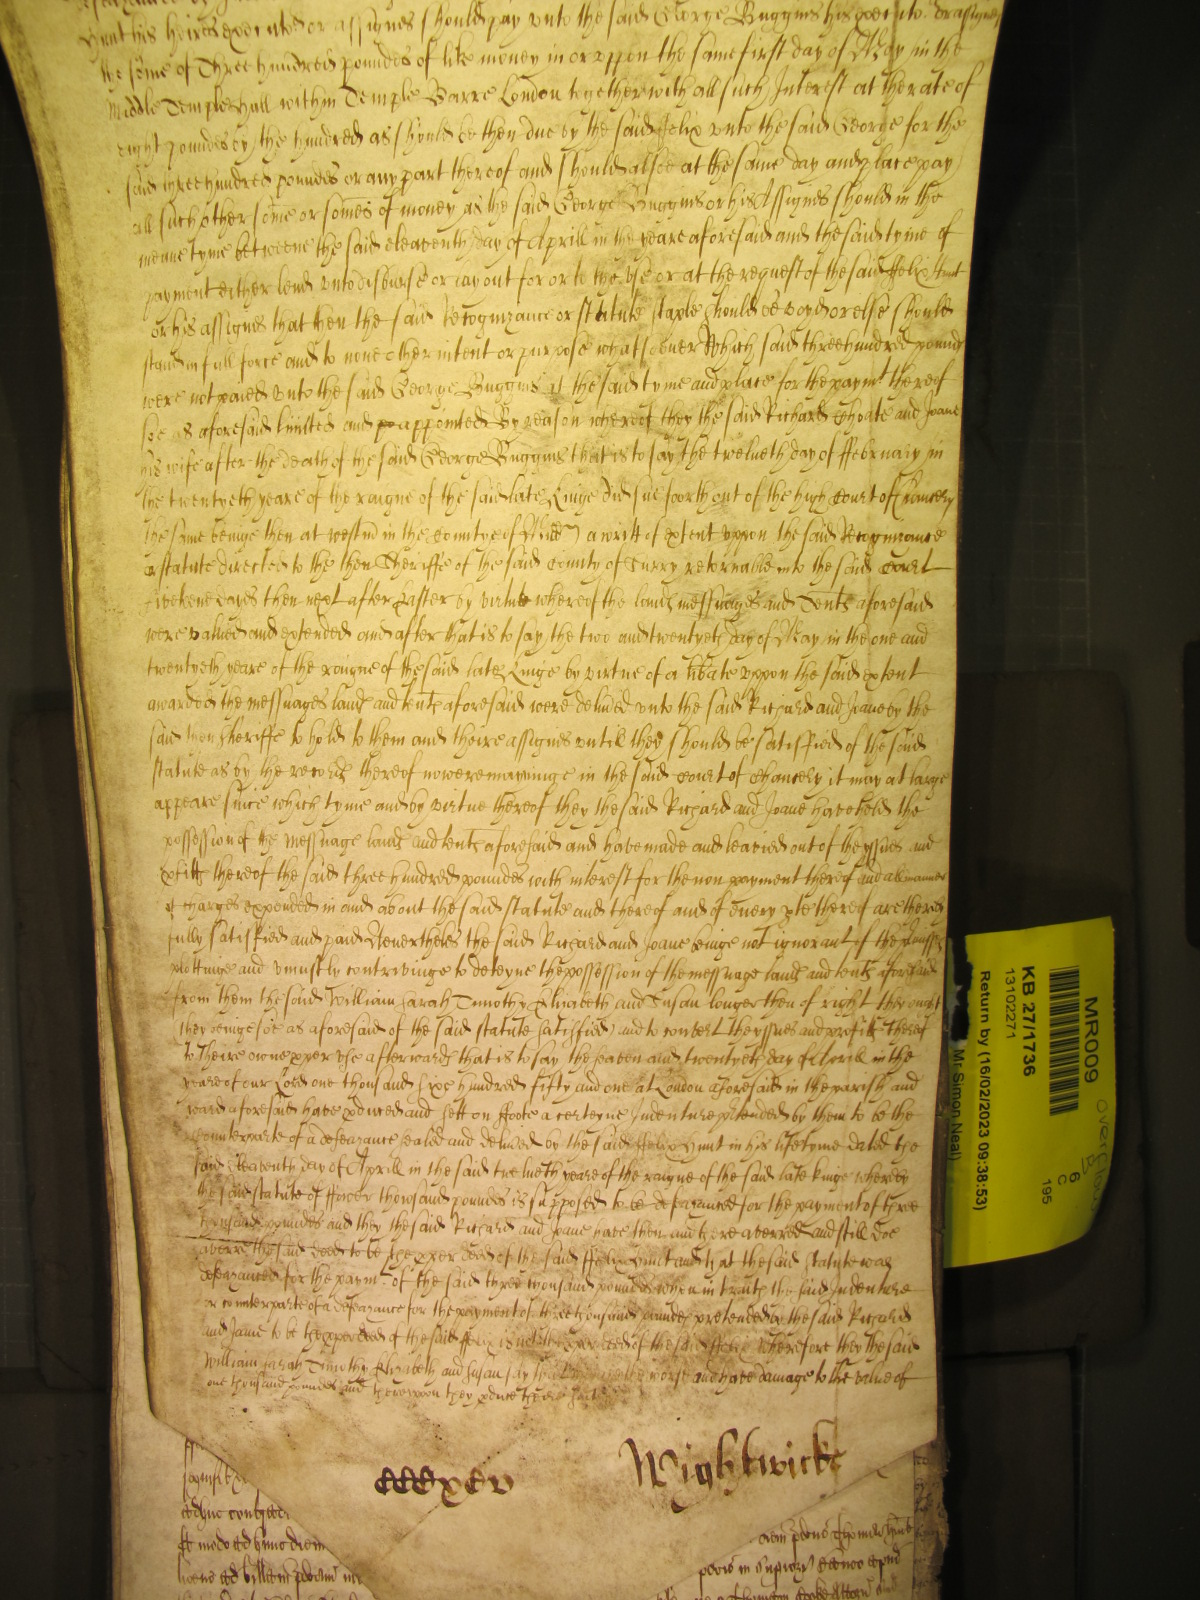 Hunt his heires executors or assignes should pay vnto the said George Buggins his executors or assignes
the some of Three hundred poundes of like money in or vppon the same first day of May in the
Middle Temple Hall within Temple Barre London together with all such Interest at the rate of
eight poundes by the hundred as should be then due by the said Felix vnto the said George for the
said three hundred poundes or any part thereof and should alsoe at the same day and place pay
all such other some or somes of money as the said George Buggins or his Assignes should in the
meane tyme betweene the said eleaventh day of Aprill in the yeare aforesaid and the said tyme of
payment either lend vnto disburse or lay out for or to the vse or at the request of the said Felix Hunt
or his assignes that then the said Recognizance or statute staple should be voyd or else should
stand in full force and to none other intent or purpose whatsoever Which said three hundred pounds
were not payed vnto the said George Buggins at the said tyme and place for the paymt thereof
soe as aforesaid limitted and appointed By reason whereof they the said Richard Choate and Joane
his wife after the death of the said George Buggins that is to say the twelueth day of ffebruary in
the twentyeth yeare of the raigne of the said late Kinge did sue foorth out of the high Court of Chancery
the same beinge then at westm in the Countye of Midd a writt of extent vppon the said Recognizance
or statute directed to the then Sheriffe of the said County of Surry retornable into the said Court
dayes then next after Easter by virtue whereof the landes messuages and Tentes aforesaid
were valued and extended and after that is to say the two and twentyeth day of May in the one and
twentyeth yeare of the raigne of the said late Kinge by virtue of a libate vppon the said extent
awarded the messuages landes and tentes aforesaid were deliued vnto the said Richard and Joane by the
said then Sheriffe to hold to them and theire assignes vntill they should be satisfied of the said
statute as by the recordes thereof nowe remayninge in the said Court of Chancery it may at large
appeare since which tyme and by virtue thereof they the said Richard and Joane have held the
possession of the messuage landes and tentes aforesaid and have made and leavied out of the yssues and
pfitts thereof the said three hundred poundes with interest for the non payment thereof and all manner
of charges expended in and about the said statute and thereof and of euery pte thereof are thereby
fully satisfied and paid Neuertheles the said Richard and Joane beinge not ignorant of the premisses
plottinge and vniustly contrivinge to deteyne the possession of the messuage landes and tentes aforesaid
from them the said William Sarah Timothy Elizabeth and Susan longer then of right they ought
they beinge soe as aforesaid of the said statute satisfied and to convert the yssues and profitts thereof
to theire owne pper vse afterwardes that is to say the seaven and twentyeth day of Aprill in the
yeare of our Lord one thousand sixe hundred fifty and one at London aforesaid in the parish and
ward aforesaid have pduced and sett on foote a certeyne Indenture ptended by them to be the
Counterparte of a defeazance sealed and deliued by the said Felix Hunt in his lifetyme dated the
said eleaventh day of Aprill in the said twelueth yeare of the raigne of the said late Kinge whereby
the said statute of fower thousand poundes is supposed to be defeazanced for the payment of three
thousand poundes and they the said Richard and Joane have then and there averred and still doe
averre the said deed to be the pper deed of the said Felix Hunt and that the said statute was
defeazanced for the paymt of the said three thousand poundes when in trueth the said Indenture
or counterparte of a defeazance for the payment of three thousand poundes pretended by the said Richard
and Joane to be the pper deed of the said Felix is not the pper deed of the said Felix Wherefore they the said
William Sarah Timothy Elizabeth and Susan say they are the worse and have damage to the value of
one thousand poundes and thereuppon they pduce theire suite
Wightwicke
CCCxCv
MR009
KB 27/1736
13102271
Return by (16/02/2023 09:38:53)
Mr Simon Neal)
6
C
195